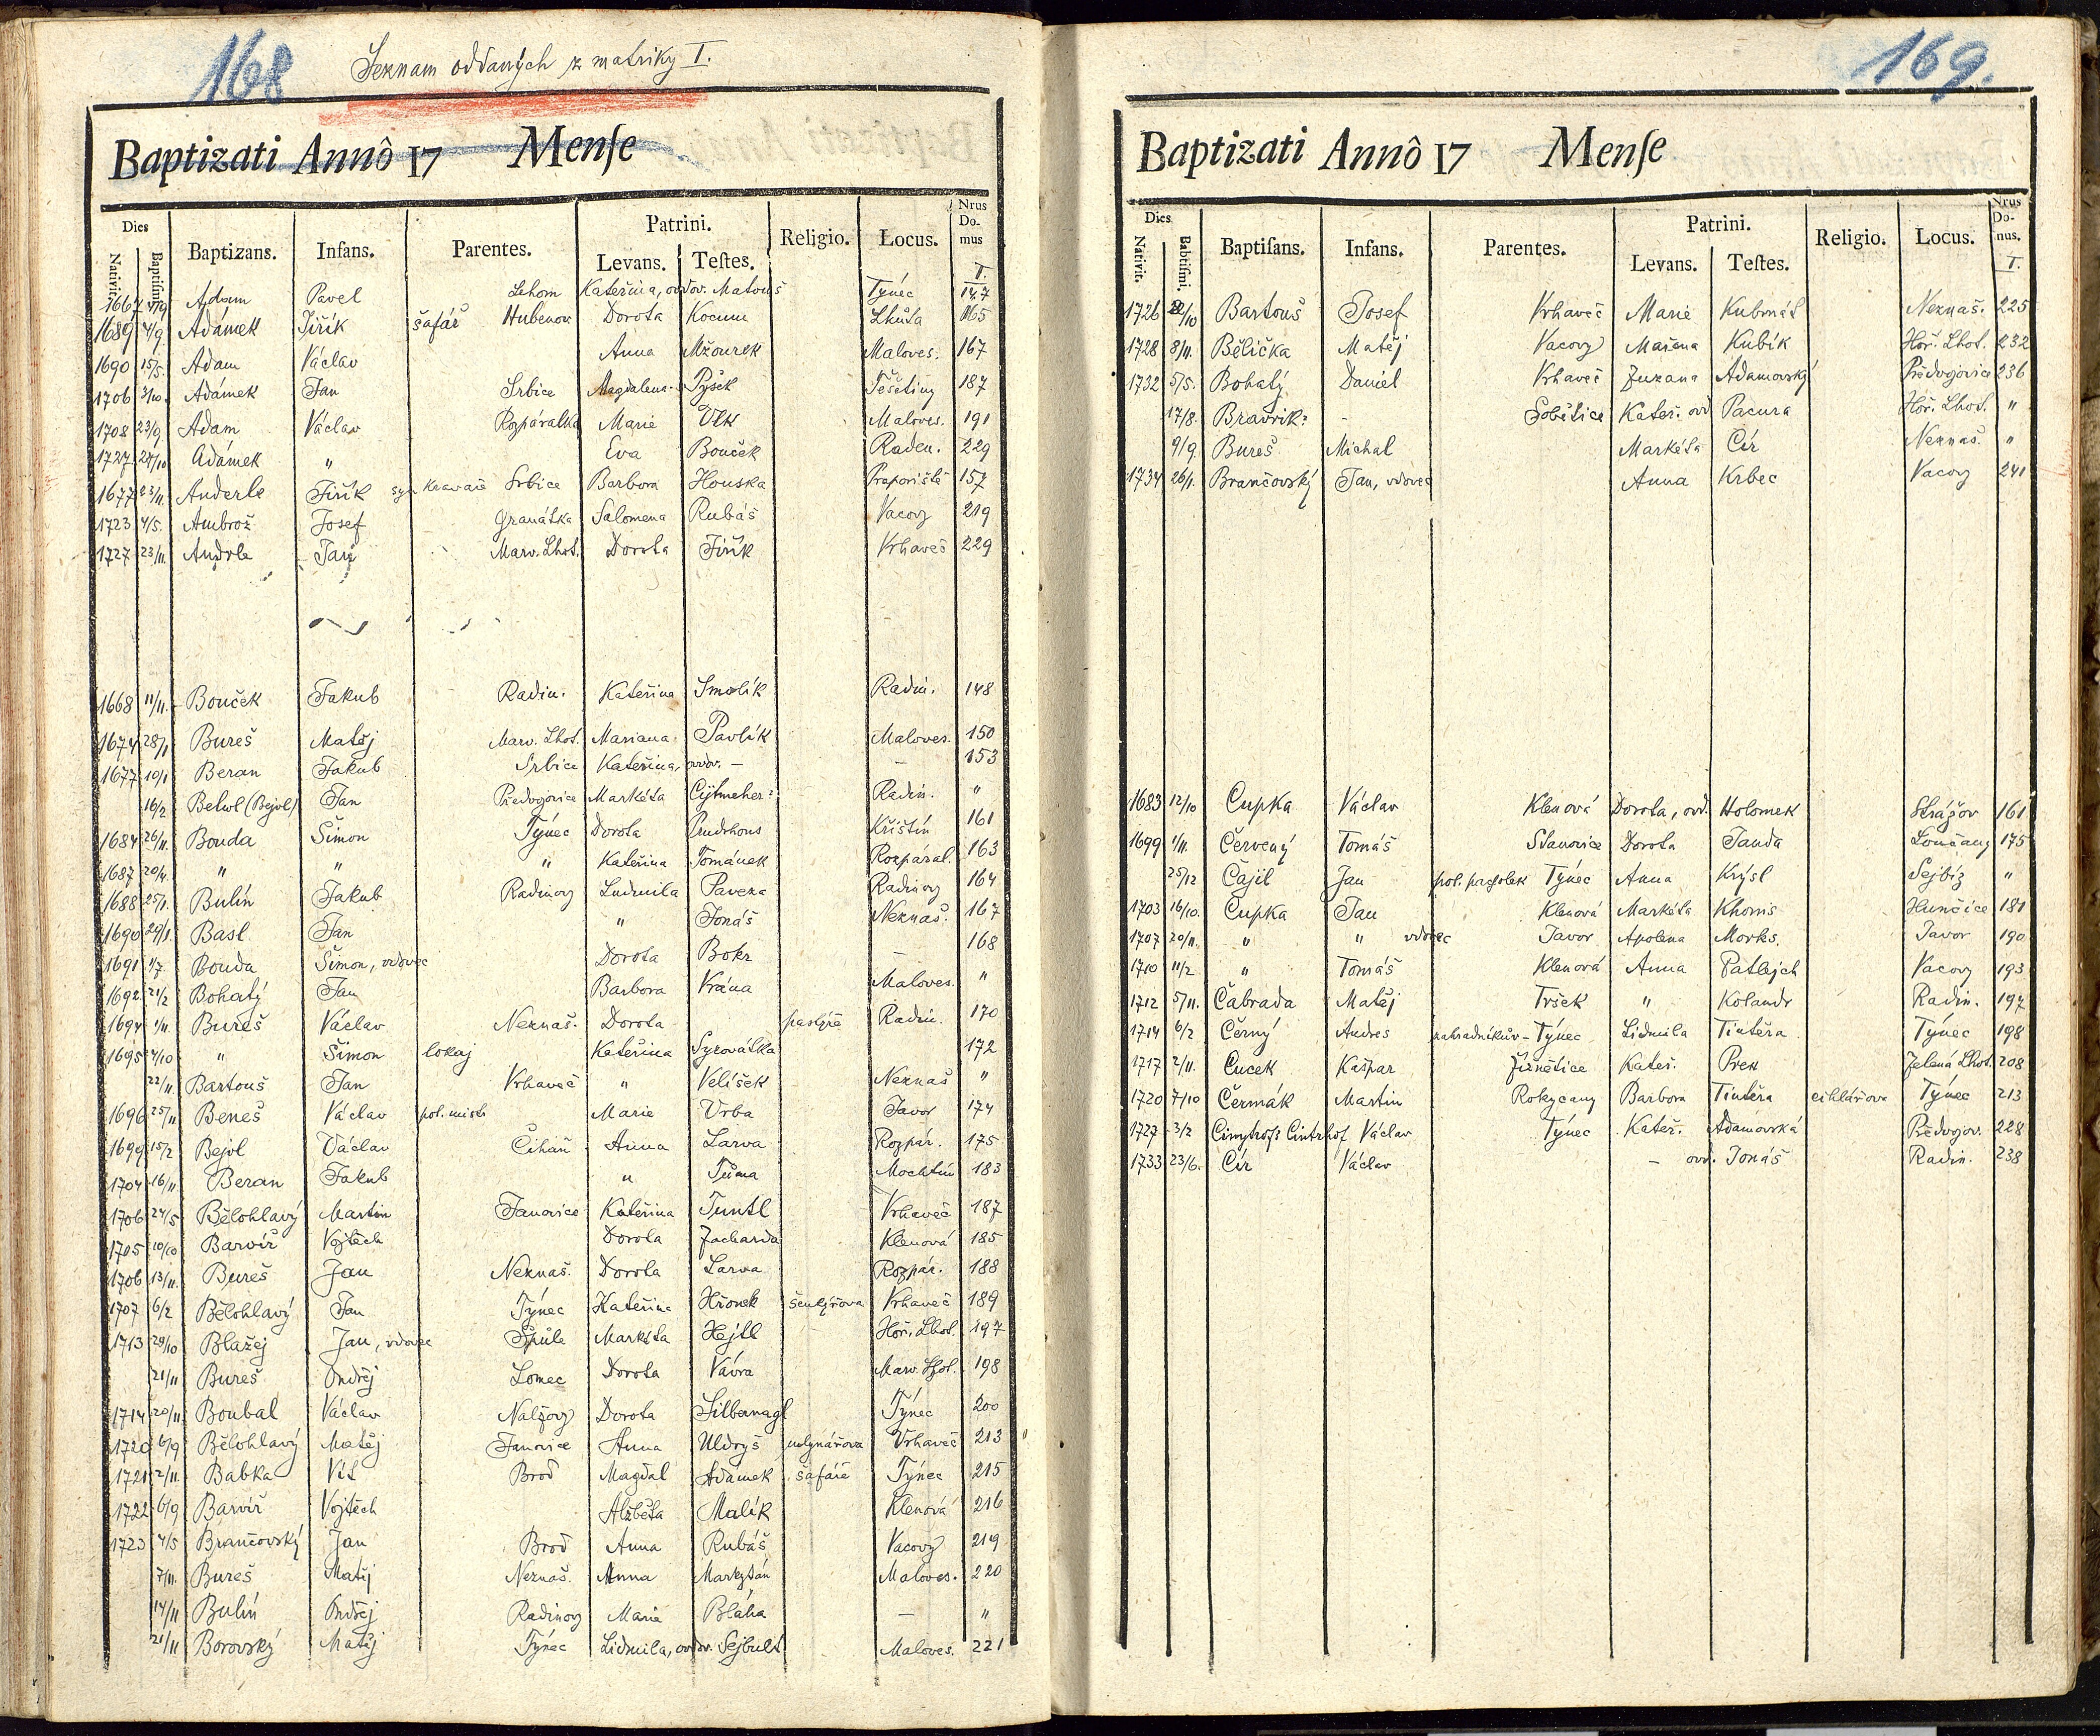 168 Seznam oddaných z matriky I.
Baptizati Annô 17 Menſe
Dies Patrini. Nrus Do- mus
Nativit. Baptiſmi. Baptizans. Infans. Parentes. Levans. Teſtes. Religio. Locus.
I.
1667 4/9 Adam Pavel Lehom Kateřina, ovdov. Matouš Týnec 147
1689 4/9 Adámek Jiřík šafář Hubenov Dorota Lhůta 165
1690 15/5. Adam Václav Anna Mžourek Maloves. 167
1706 3/10. Adámek Jan Srbice Magdalena Pyšek Těšetiny 187
1708 23/9 Adam Václav Rozpáralka Marie Vlk Maloves. 191
1727 24/10 Adámek " Eva Bouček Raden. 229
1677 23/11. Anderle Jiřík syn kravaře Srbice Barbora Houska Praporiště 157
1723 4/5. Ambrož Josef Granátka Salomena Rubáš Vacovy 219
1727 23/11. Andrle Jan Marv. Lhot. Dorota Jiřík Vrhaveč 229
1668 11/11. Bouček Jakub Radin. Kateřina Smolík Radin. 148
1674 28/1 Bureš Matěj Marv. Lhot. Mariana Pavlík Maloves. 150
1677 10/1 Beran Jakub Srbice Kateřina, ovdov. — — 153
16/2 Belwl (Bejvl) Jan Předvojovice Markéta Cijtmeher? Radin. "
1684 26/11. Bouda Šimon Týnec Dorota Prudhons Křištín 161
1687 20/4. " " " Kateřina Tománek Rozpáral. 163
1688 25/1. Bulín Jakub Radinovy Ludmila Paveza Radinovy 164
1690 29/1. Basl Jan " Jonáš Neznaš. 167
1691 1/7. Bouda Šimon, vdovec Dorota Bokr — 168
1692 21/2 Bohatý Jan Barbora Vrána Maloves. "
1694 1/11. Bureš Václav Neznaš. Dorota pastýře Radin. 170
1695 4/10 " Šimon lokaj Kateřina Syrovátka 172
22/11. Bartouš Jan Vrhaveč " Velíšek Neznaš "
1696 25/11 Beneš Václav pol. mistr Marie Vrba Javor 174
1699 15/2 Bejvl Václav Čihaň Anna Larva Rozpár. 175
1704 16/11. Beran Jakub " Tůma Mochtín 183
1706 24/5 Bělohlavý Martin Janovice Kateřina Tuntl Vrhaveč 187
1705 10/10 Barvíř Vojtěch Dorota Zacharda Klenová 185
1706 13/11. Bureš Jan Neznaš. Dorota Larva Rozpár. 188
1707 6/2 Bělohlavý Jan Týnec Kateřina Hřonek šenkýřova Vrhaveč 189
1713 29/10 Blažej Jan, vdovec Špůle Markéta Hejtl Hoř. Lhot. 197
21/11 Bureš Ondřej Lomec Dorota Vávra Marv. Lhot. 198
1714 20/11. Boubal Václav Nalžovy Dorota Silbernagl Týnec 200
1720 6/9 Bělohlavý Matěj Janovice Anna Uldryš mlynářova Vrhaveč 213 "
1721 2/11. Babka Vít Brod Magdal Adámek šafáře Týnec 215
1722 6/9 Barvíř Vojtěch Alžběta Malík Klenová 216
1723 4/5 Brančovský Jan Brod Anna Rubáš Vacovy 219
7/11. Bureš Matěj Neznaš. Anna Markytán Maloves. 220
14/11 Bulín Ondřej Radinovy Marie Bláha — "
21/11 Borovský Matěj Týnec Lidmila, ovdov. Sejbult Maloves. 221
169.
Baptizati Annô 17 Menſe
Dies Patrini. Nrus Do- nus.
Nativit. Babtiſmi. Baptiſans. Infans. Parentes. Levans. Teſtes. Religio. Locus.
I.
1726 22/10 Bartouš Josef Vrhaveč Marie Kubmát Neznaš. 225
1728 8/11. Bělička Matěj Vacovy Mařena Kubík Hoř. Lhot. 232
1732 5/5. Bohatý Daniel Vrhaveč Zuzana Adamovský Předvojovice 236
17/8. Bravrik? - Sobětice Kateř. ovd Pacura Hoř. Lhot. "
9/9 Bureš Michal Markéta Cír Neznaš. "
1734 26/1. Brančovský Jan, vdovec Anna Krbec Vacovy 241
1683 12/10 Cupka Václav Klenová Dorota, ovd. Holomek Strážov 161
1699 1/11. Červený Tomáš Stanovice Dorota Janda Loučany 175
25/12 Čajil Jan pol. pacholek Týnec Anna Krýsl Sejbiz "
1703 16/10. Cupka Jan Klenová Markéta Khoms Hunčice 181
1707 20/11. " " vdovec Javor Apolena Morks. Javor 190
1710 11/2 " Tomáš Klenová Anna Patlejch Vacovy 193
1712 5/11. Čabrada Matěj Tršek " Kolandr Radin. 197
1714 6/2 Černý Andres zahradníkův - Týnec Lidmila Tintěra Týnec 198
1717 2/11. Cucek Kašpar Žiznětice Kateř. Prex Zelená Lhot. 208
1720 7/10 Čermák Martin Rokycany Barbora Tintěra cihlářova Týnec 213
1727 3/2 Cimybrofs Cintrhof Václav Týnec Kateř. Adamovská Předvojov. 228
1733 23/6. Cír Václav — ovd. Jonáš Radin. 238